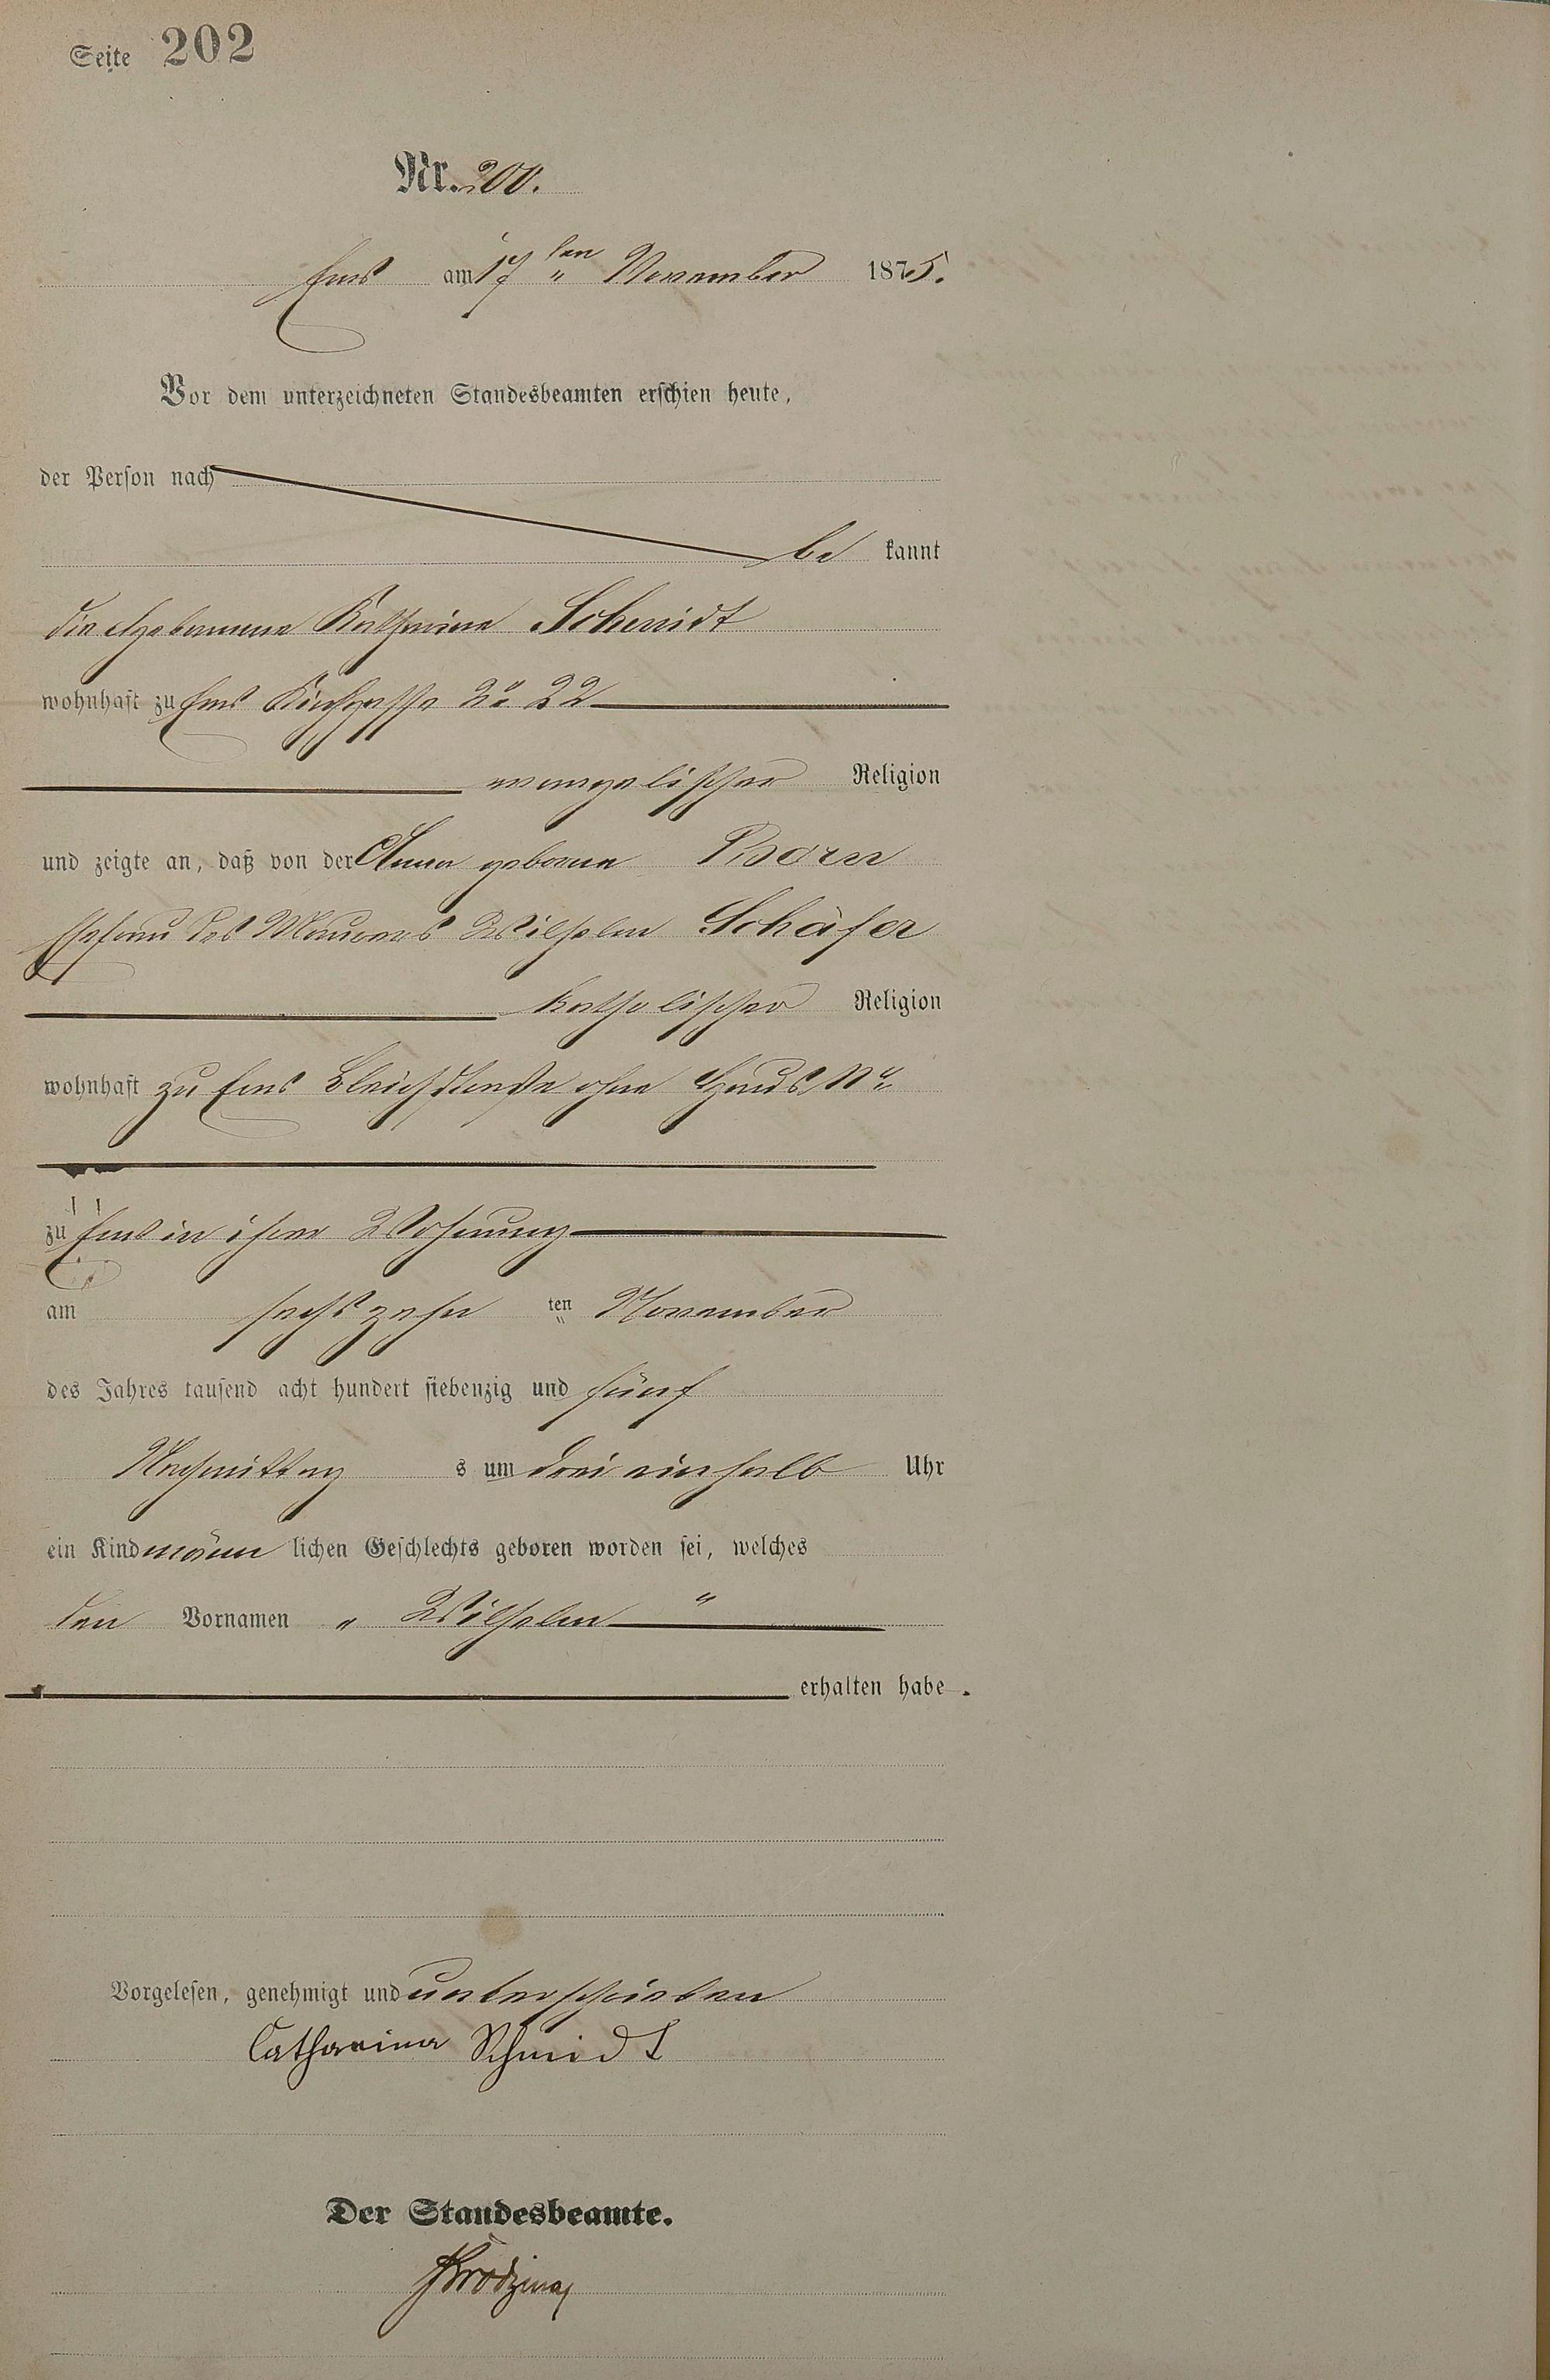 Seite 202
Nr. 200.
Ems am 17ten November 1875.
Vor dem unterzeichneten Standesbeamten erschien heute,
der Person nach
be kannt
die Hebamme Katharina Schmidt
wohnhaft zu Ems Kirchgasse No 22
evangelischer Religion
und zeigte an, daß von der Anna geborne Born
Ehefrau des Maurers Wilhelm Schäfer
katholischer Religion
wohnhaft zu Ems Bleichstraße ohne Haus No
zu Ems in ihrer Wohnung
am sechszehn ten November
des Jahres tausend acht hundert siebenzig und fünf
Nachmittag s um drei einhalb Uhr
ein Kind männ lichen Geschlechts geboren worden sei, welches
den Vornamen „ Wilhelm "
erhalten habe.
Vorgelesen, genehmigt und unterschrieben
Catharina Schmidt
Der Standesbeamte.